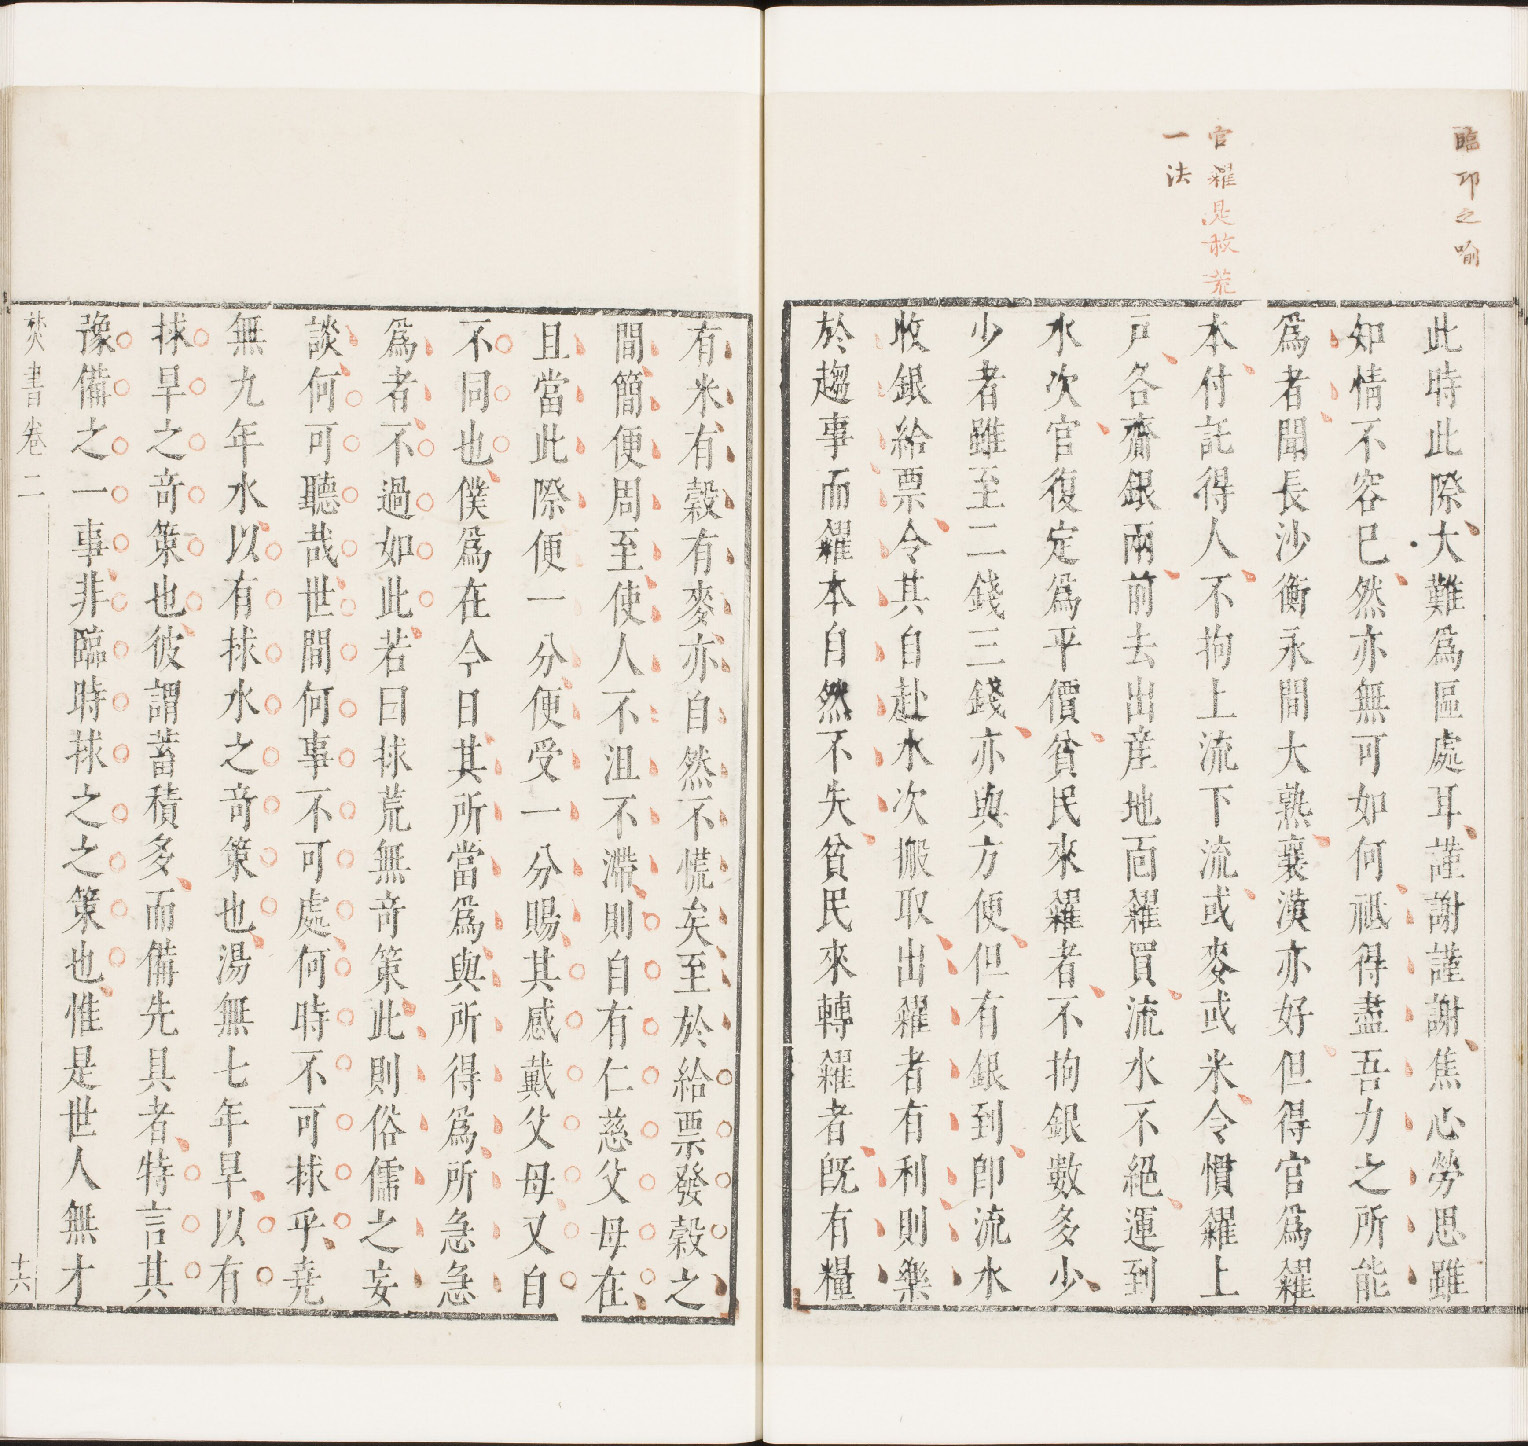 臨邛之喻
官糴是救荒
一法
此時此際大難爲區處耳謹謝謹謝焦心勞思雖
如情不容已然亦無可如何祗得盡吾力之所能
爲者聞長沙衡永間大熟襄漢亦好但得官爲糴
本付託得人不拘上流下流或麥或米令慣糴上
戶各齎銀兩前去出産地面糴買流水不絕運到
水次官復定爲平價貧民來糴者不拘銀數多少
少者雖至二錢三錢亦與方便但有銀到卽流水
收銀給票令其自赴水次搬取出糴者有利則樂
於趨事而糴本自然不失貧民來轉糴者旣有糧
有米有穀有麥亦自然不慌矣至於給票發穀之
間簡便周至使人不沮不滯則自有仁慈父母在
且當此際便一分便受一分賜其感戴父母又自
不同也僕爲在今日其所當爲與所得爲所急急
爲者不過如此若曰捄荒無奇策此則俗儒之妄
談何可聽哉世間何事不可處何時不可捄乎堯
無九年水以有捄水之奇策也湯無七年旱以有
捄旱之奇策也彼謂蓄積多而備先具者特言其
豫備之一事非臨時捄之之策也惟是世人無才
焚書卷二
十六